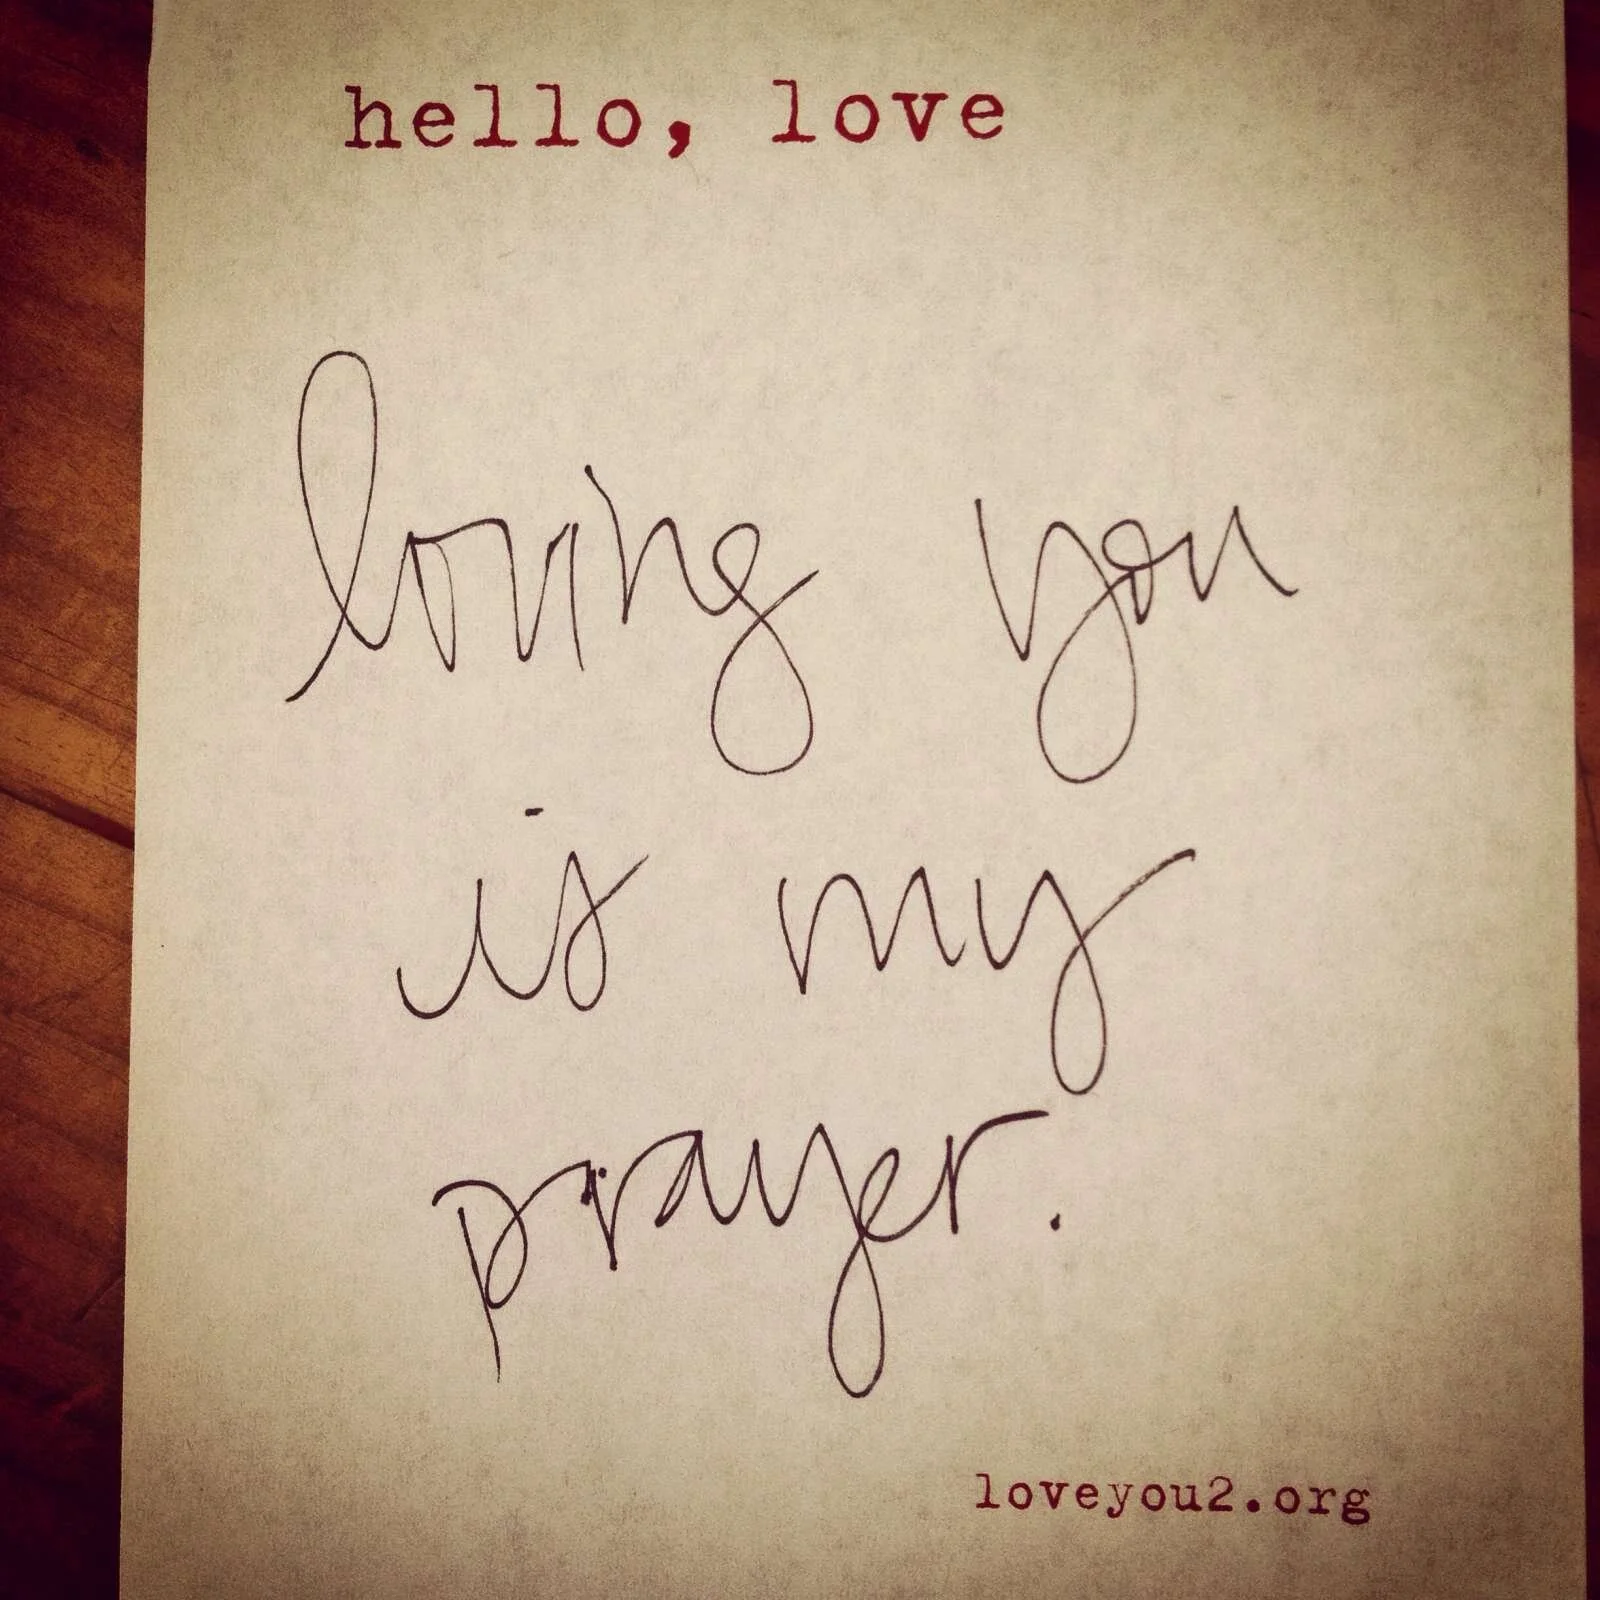 hello, love
loving you
is my
prayer.
loveyou2.org